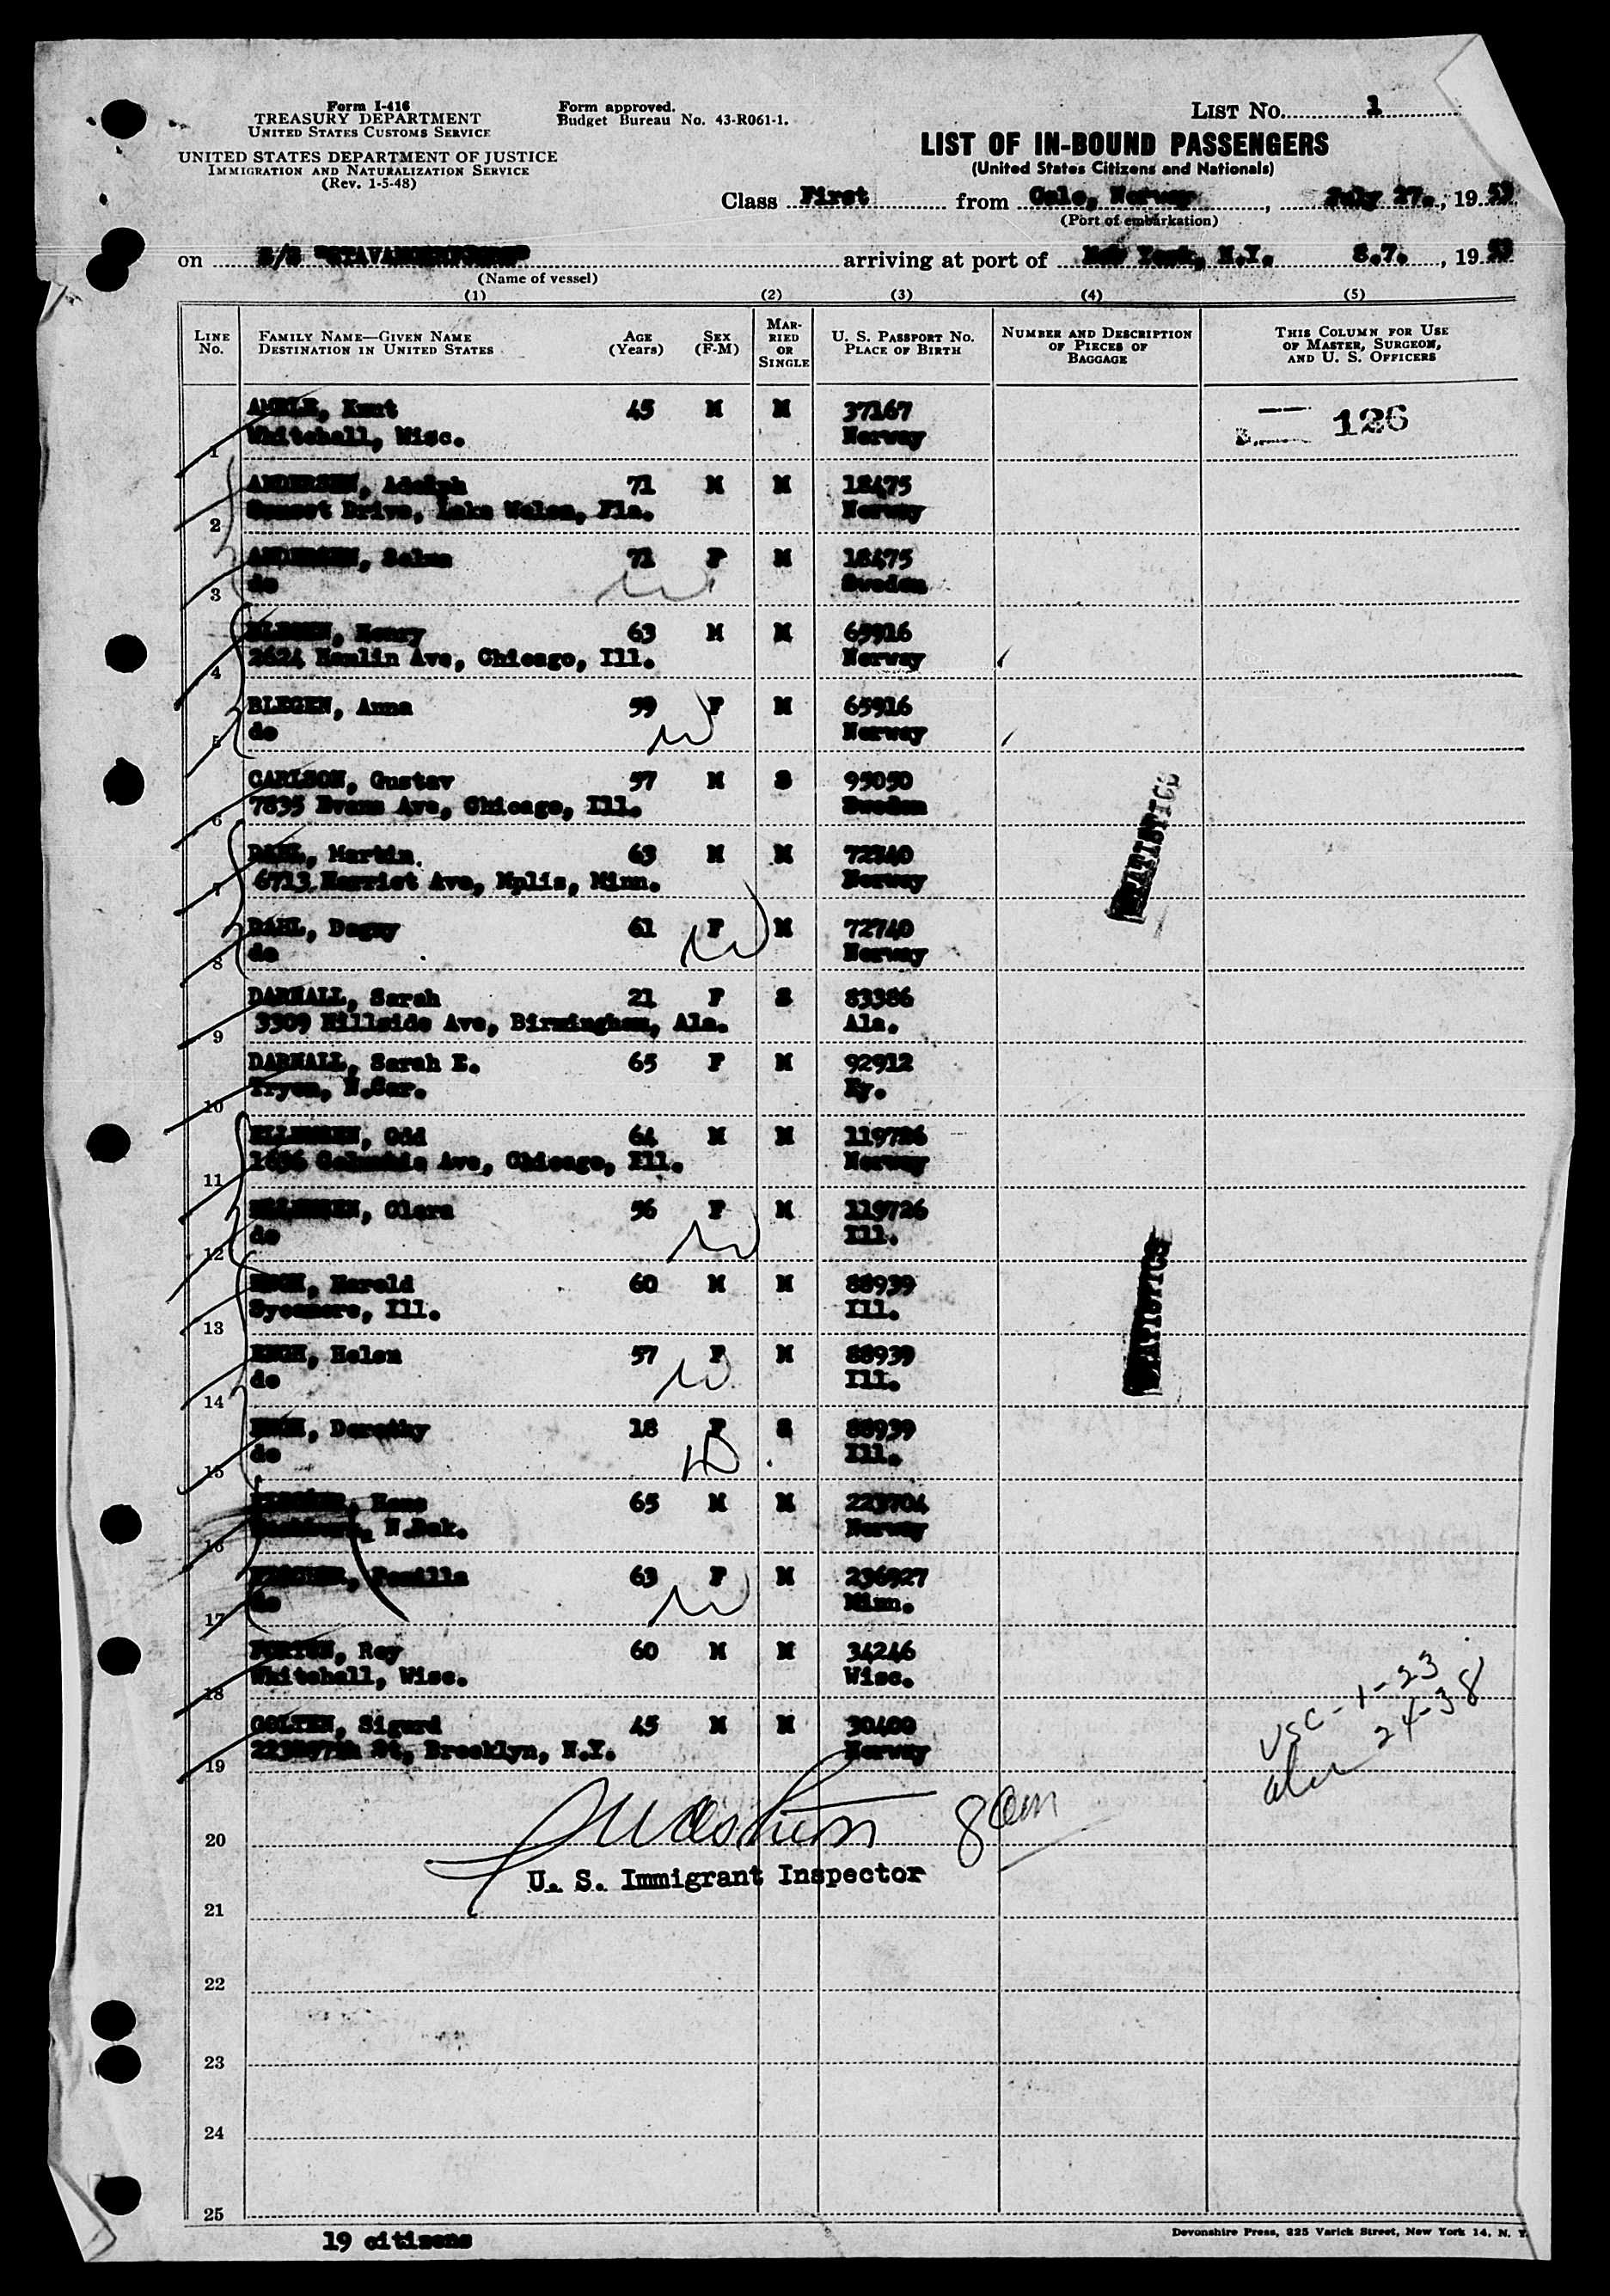 Form I-416
TREASURY DEPARTMENT
UNITED STATES CUSTOMS SERVICE
UNITED STATES DEPARTMENT OF JUSTICE
IMMIGRATION AND NATURALIZATION SERVICE
(Rev. 1-5-48)
Form approved.
Budget Bureau No. 43-R061-1.
LIST No. 1
LIST OF IN-BOUND PASSENGERS
(United States Citizens and Nationals)
Class First from Oslo, Norway, July 27., 1953
(Port of embarkation)
on S/S "STAVANGERFJORD" arriving at port of New York, N.Y. 8.7., 1953
(Name of vessel)
(1) (2) (3) (4) (5)
LINE No. FAMILY NAME—GIVEN NAME DESTINATION IN UNITED STATES AGE (Years) SEX (F-M) MARRIED OR SINGLE U. S. PASSPORT NO. PLACE OF BIRTH NUMBER AND DESCRIPTION OF PIECES OF BAGGAGE THIS COLUMN FOR USE OF MASTER, SURGEON, AND U. S. OFFICERS
Knut 45 M M 37167 126
1 Whitehall, Wisc. Norway
ANDERSEN, Adolph 71 M M 18475
2 Sunset Drive, Lake Wales, Fla. Norway
ANDERSEN, Selma 71 F M 18475
3 do Sweden
BLEGEN, Henry 63 M M 65916
4 2624 Hamlin Ave, Chicago, Ill. Norway
BLEGEN, Anna 59 F M 65916
5 do Norway
CARLSON, Gustav 57 M S 95050
6 7835 Evans Ave, Chicago, Ill. Sweden
DAHL, Martin 63 M M 72740
7 6713 Harriet Ave, Mplis, Minn. Norway
DAHL, Dagny 61 F M 72740
8 do Norway
DARNALL, Sarah 21 F S 83386
9 3309 Hillside Ave, Birmingham, Ala. Ala.
DARNALL, Sarah E. 65 F M 92912
10 Tryon, N.Car. Ky.
ELLINGSEN, Odd 64 M M 119726
11 Columbia Ave, Chicago, Ill. Norway
ELLINGSEN, Clara 56 F M 119726
12 do Ill.
ENGH, Harold 60 M M 88939
13 Sycamore, Ill. Ill.
ENGH, Helen 57 F M 88939
14 do Ill.
ENGH, Dorothy 18 F S 88939
15 do Ill.
Hans 65 M M 223704
16 N.Dak. Norway
63 F M 236927
17 do Minn.
Roy 60 M M 34246
18 Whitehall, Wisc. Wisc.
GOLTEN, Sigurd 45 M M 30400
19 St, Brooklyn, N.Y. Norway
STATISTICS
STATISTICS
USC-1-23
24-38
8
20
U. S. Immigrant Inspector
21
22
23
24
25
19 citizens
Devonshire Press, 225 Varick Street, New York 14, N. Y.